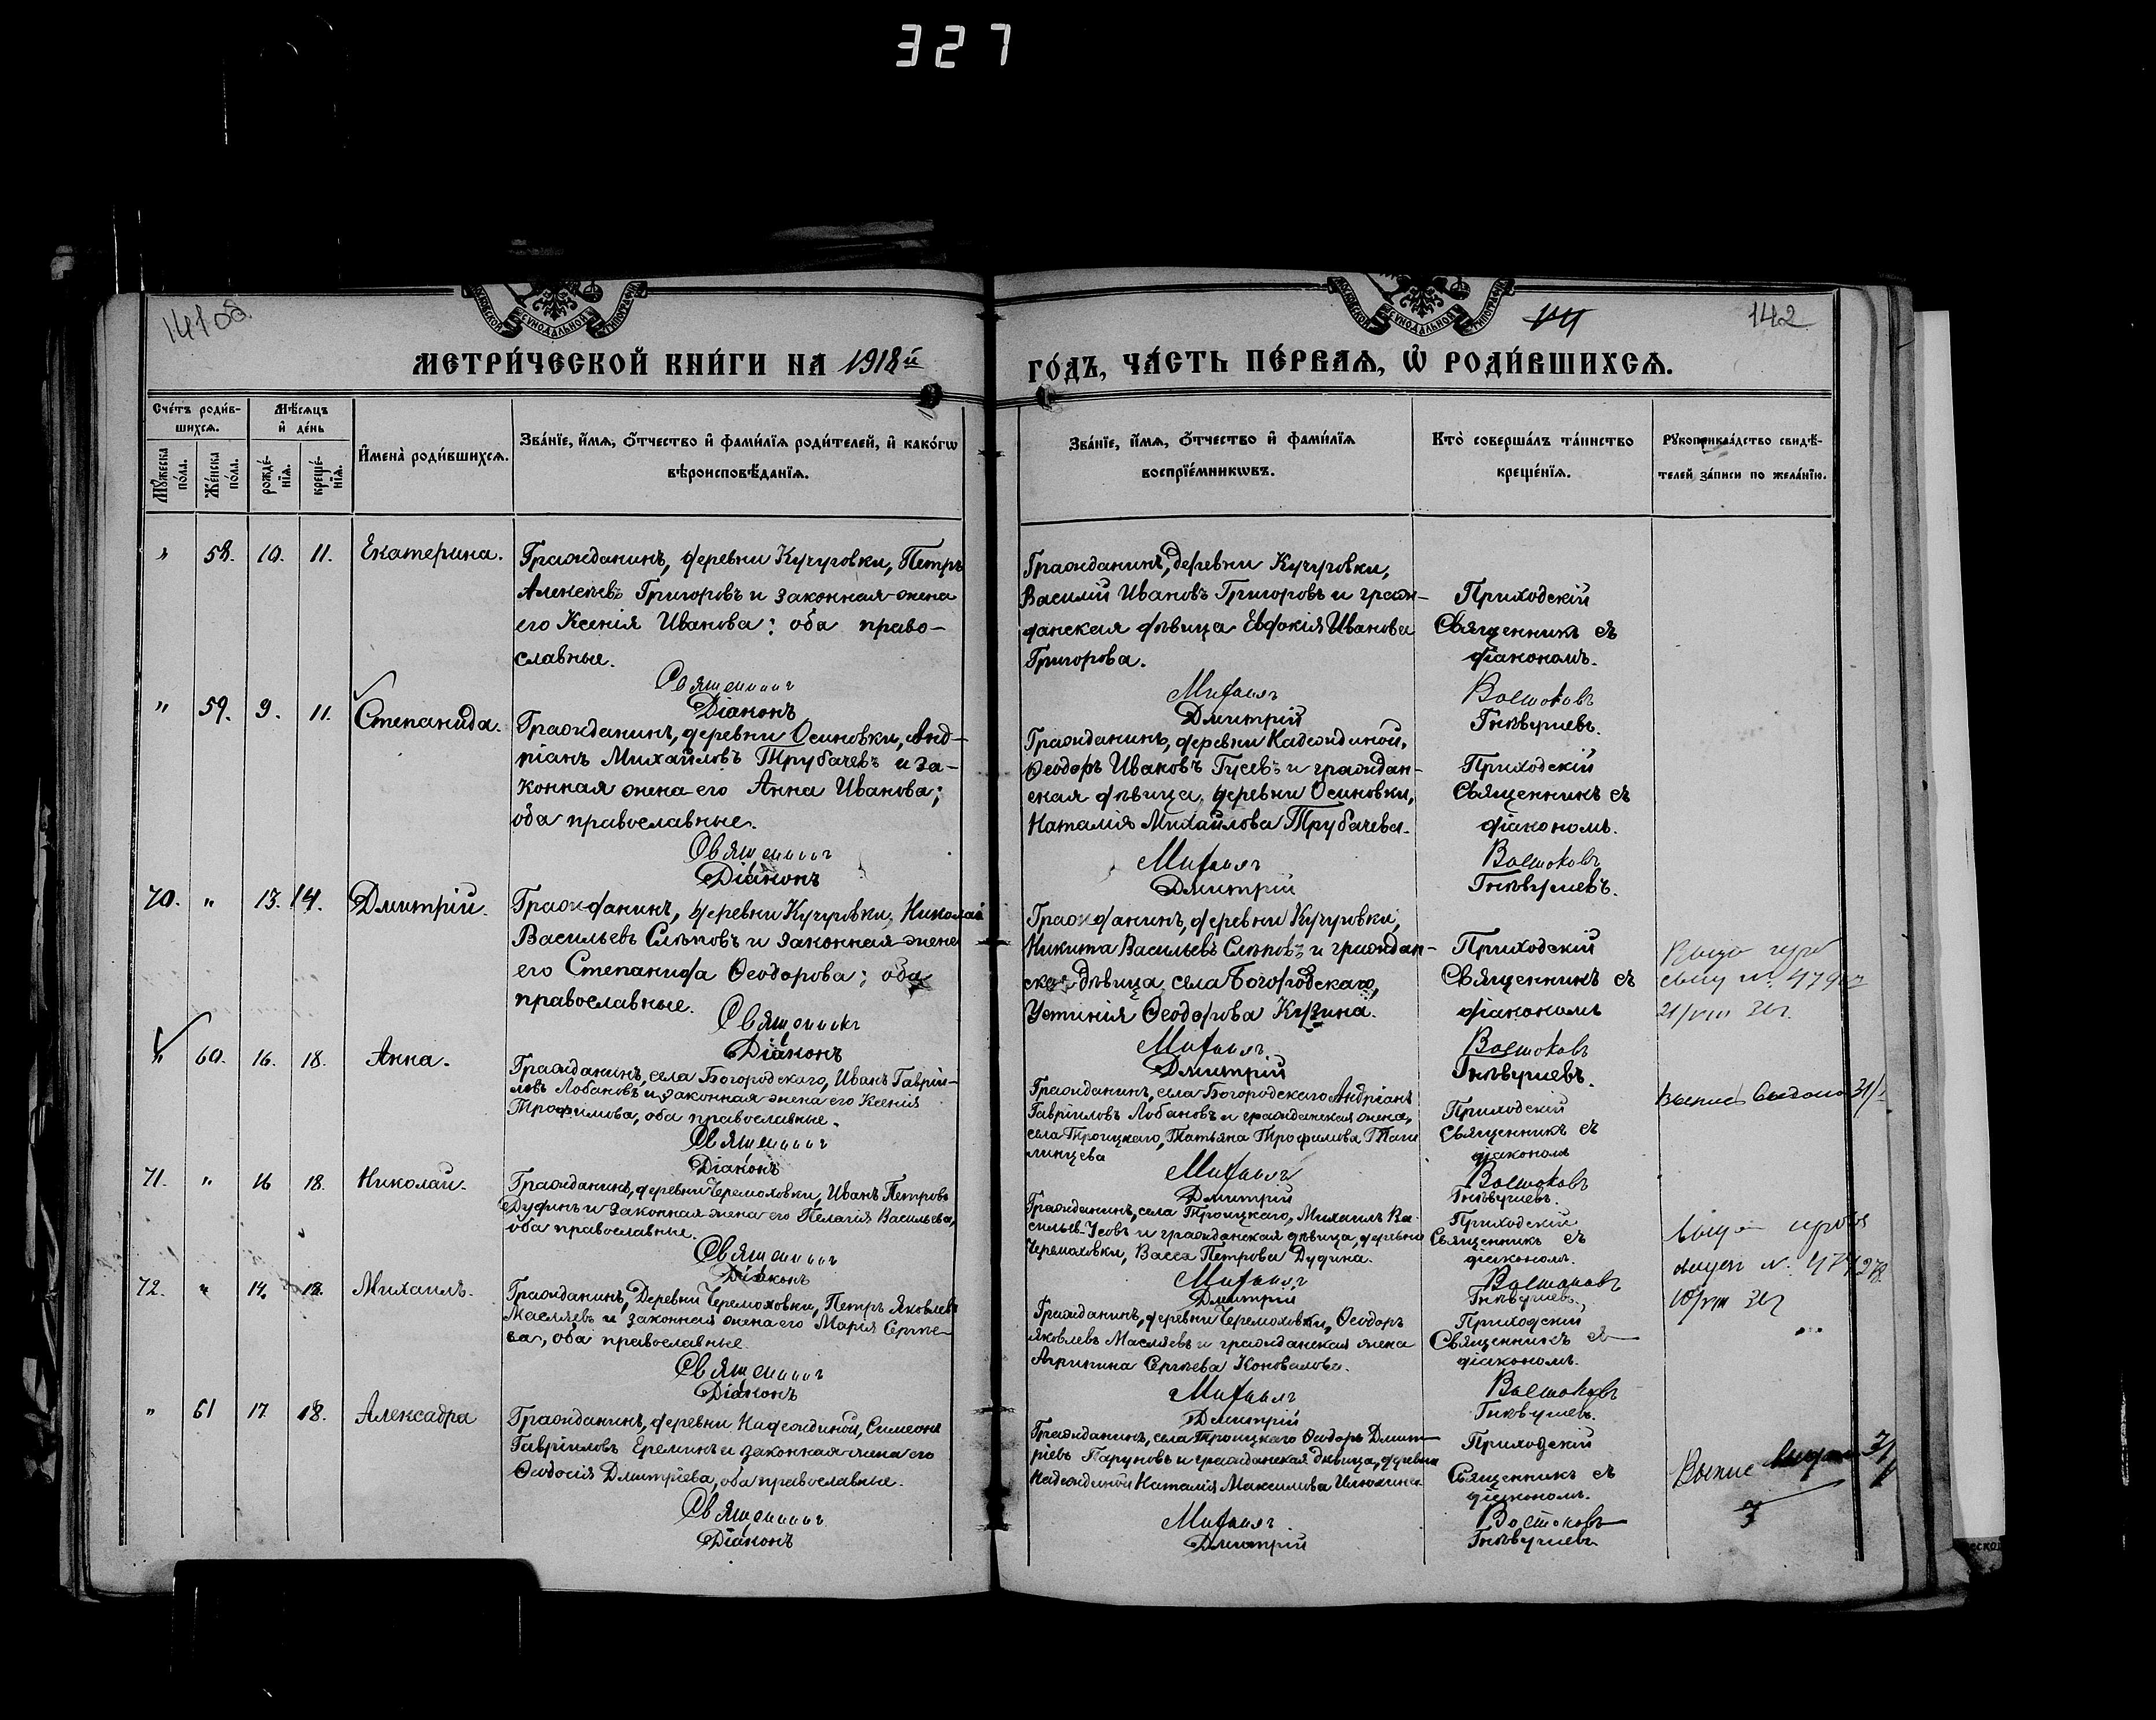 327
141 об.
МОСКОВСКОЙ СУНОДАЛЬНОЙ ТИПОГРАФІИ
МОСКОВСКОЙ СУНОДАЛЬНОЙ ТИПОГРАФІИ
142
МЕТРИ́ЧЕСКОЙ КНИ́ГИ НА 1918й
ГО́ДЪ, ЧА́СТЬ ПЕ́РВАѦ, Ѡ҆ РОДИ́ВШИХСѦ.
Сче́тъ роди́в-
шихсѧ.
Мѣ́сѧцъ
и҆ де́нь
Мꙋ́жеска
по́ла.
Же́нска
по́ла.
рожде́-
нїѧ.
креще́-
нїѧ.
И҆мена̀ роди́вшихсѧ.
Зва́нїе, и҆́мѧ, ѻ҆́тчество и҆ фами́лїѧ роди́телей, и҆ како́гѡ
вѣроисповѣ́данїѧ.
Зва́нїе, и҆́мѧ, ѻ҆́тчество и҆ фами́лїѧ
воспрїе́мникѡвъ.
Кто̀ соверша́лъ та́инство
креще́нїѧ.
Рꙋкоприкла́дство свидѣ́-
телей за́писи по жела́нїю.
" 58. 10. 11. Екатерина.
Гражданинъ, деревни Кучуровки, Петръ
Алексѣевъ Григоровъ и законная жена
его Ксенія Иванова; оба право-
славные.
Священникъ
Діаконъ
Гражданинъ, деревни Кучуровки,
Василій Ивановъ Григоровъ и граж-
данская дѣвица Евдокія Иванова
Григорова.
Михаилъ
Дмитрій
Приходскій
Священникъ съ
діакономъ.
Востоковъ
Гнѣвушевъ.
" 59. 9. 11. Степанида.
Гражданинъ, деревни Осиновки, Анд-
ріанъ Михайловъ Трубачевъ и за-
конная жена его Анна Иванова;
оба православные.
Священникъ
Діаконъ
Гражданинъ, деревни Надеждиной,
Ѳеодоръ Ивановъ Гусевъ и граждан-
ская дѣвица, деревни Осиновки,
Наталія Михайлова Трубачева.
Михаилъ
Дмитрій
Приходскій
Священникъ съ
діакономъ.
Востоковъ
Гнѣвушевъ.
70. " 13. 14. Дмитрій.
Гражданинъ, деревни Кучуровки, Николай
Васильевъ Слѣповъ и законная жена
его Степанида Ѳеодорова; оба
православные.
Священникъ
Діаконъ
Гражданинъ, деревни Кучуровки,
Никита Васильевъ Слѣповъ и граждан-
ская дѣвица, села Богородскаго,
Устинія Ѳеодорова
Михаилъ
Дмитрій
Приходскій
Священникъ съ
діакономъ
Востоковъ
Гнѣвушевъ.
" 60. 16. 18. Анна.
Гражданинъ, села Богородскаго, Иванъ Гавріи-
ловъ Лобановъ и законная жена его Ксенія
Трофимова, оба православные.
Священникъ
Діаконъ
Гражданинъ, села Богородскаго Андріанъ
Гавріиловъ Лобановъ и гражданская жена,
села Троицкаго, Татьяна Трофимова
Михаилъ
Дмитрій
Приходскій
Священникъ съ
діакономъ
Востоковъ
Гнѣвушевъ.
71. " 16 18. Николай.
Гражданинъ, деревни Черемоховки, Иванъ Петровъ
Дудинъ и законная жена его Пелагія Васильева,
оба православные.
Священникъ
Діаконъ
Гражданинъ, села Троицкаго, Михаилъ Ва-
сильев. Усовъ и гражданская дѣвица, деревни
Черемоховки, Васса Петрова Дудина.
Михаилъ
Дмитрій
Приходскій
Священникъ съ
діакономъ.
Востоковъ
Гнѣвушевъ.
72. " 14. 18. Михаилъ.
Гражданинъ, Деревни Черемоховки, Петръ Яковлевъ
Масляевъ и законная жена его Марія Сергѣе-
ва, оба православные
Священникъ
Діаконъ
Гражданинъ, деревни Черемоховки, Ѳеодоръ
Яковлевъ Масляевъ и гражданская жена
Агрипина Сергѣева Коновалова.
Михаилъ
Дмитрій
Приходскій
Священникъ съ
діакономъ.
Востоковъ
Гнѣвушевъ.
" 61 17. 18. Алексадра
Гражданинъ, деревни Надеждиной, Симеонъ
Гавріиловъ Ереминъ и законная жена его
Ѳеодосія Дмитріева, оба православные.
Священникъ
Діаконъ
Гражданинъ, села Троицкаго Ѳеодоръ Дмит-
ріевъ и гражданская дѣвица, деревни
Надеждиной Наталія Максимова
Михаилъ
Дмитрій
Приходскій
Священникъ съ
діакономъ.
Востоковъ
Гнѣвушевъ